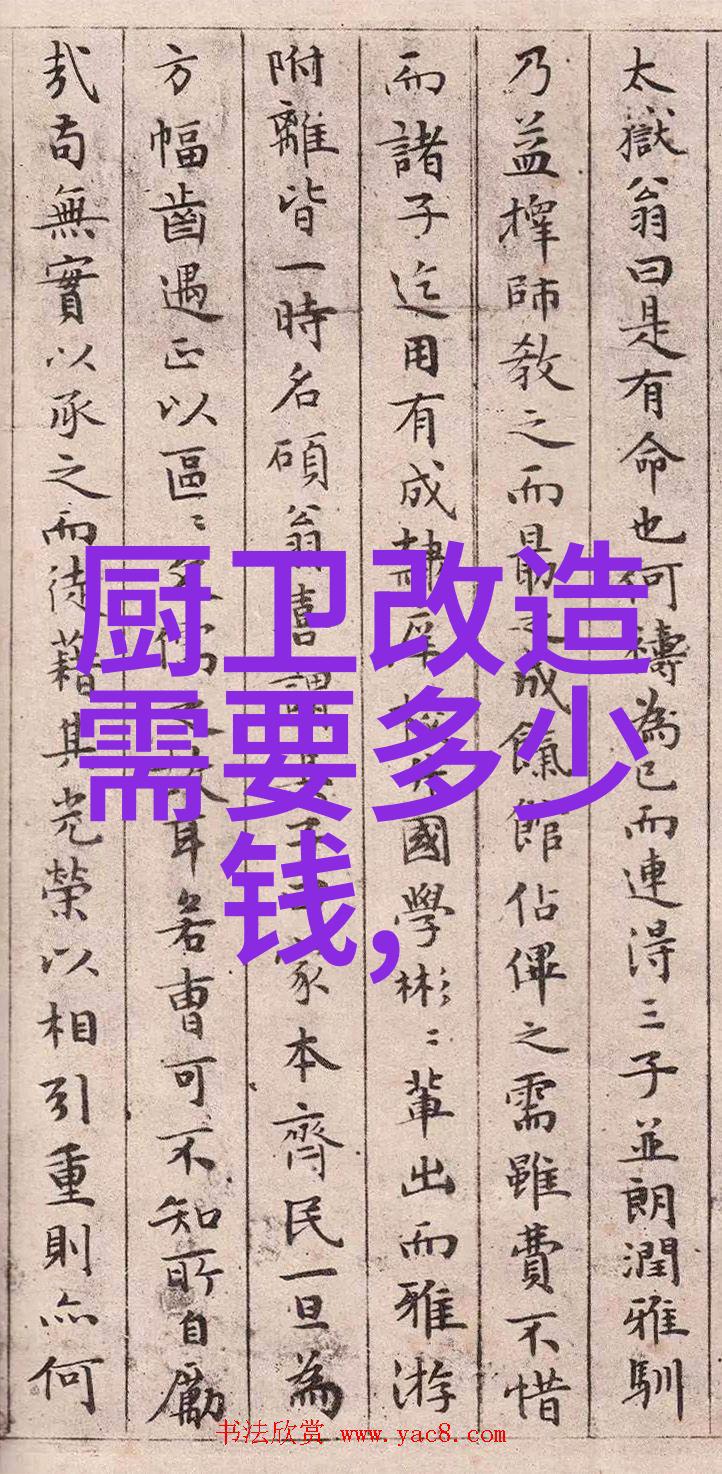 太嶽翁曰是有命也何禱為已而連得三子並朗潤雅馴
乃益擇師教之而最之成餼館佔俾之需雖費不惜
而諸子迄用有成國學彬〻輩出而雅游
附離皆一時名碩翁喜謂其子家本齊民一旦為
方幅齒遇正以區〻耳若曹可不知所自勵
哉苟無實以承之而徒藉其光榮以相引重則亦何
厨卫改造
需要多少
钱,
书法欣赏 www.yac8.com